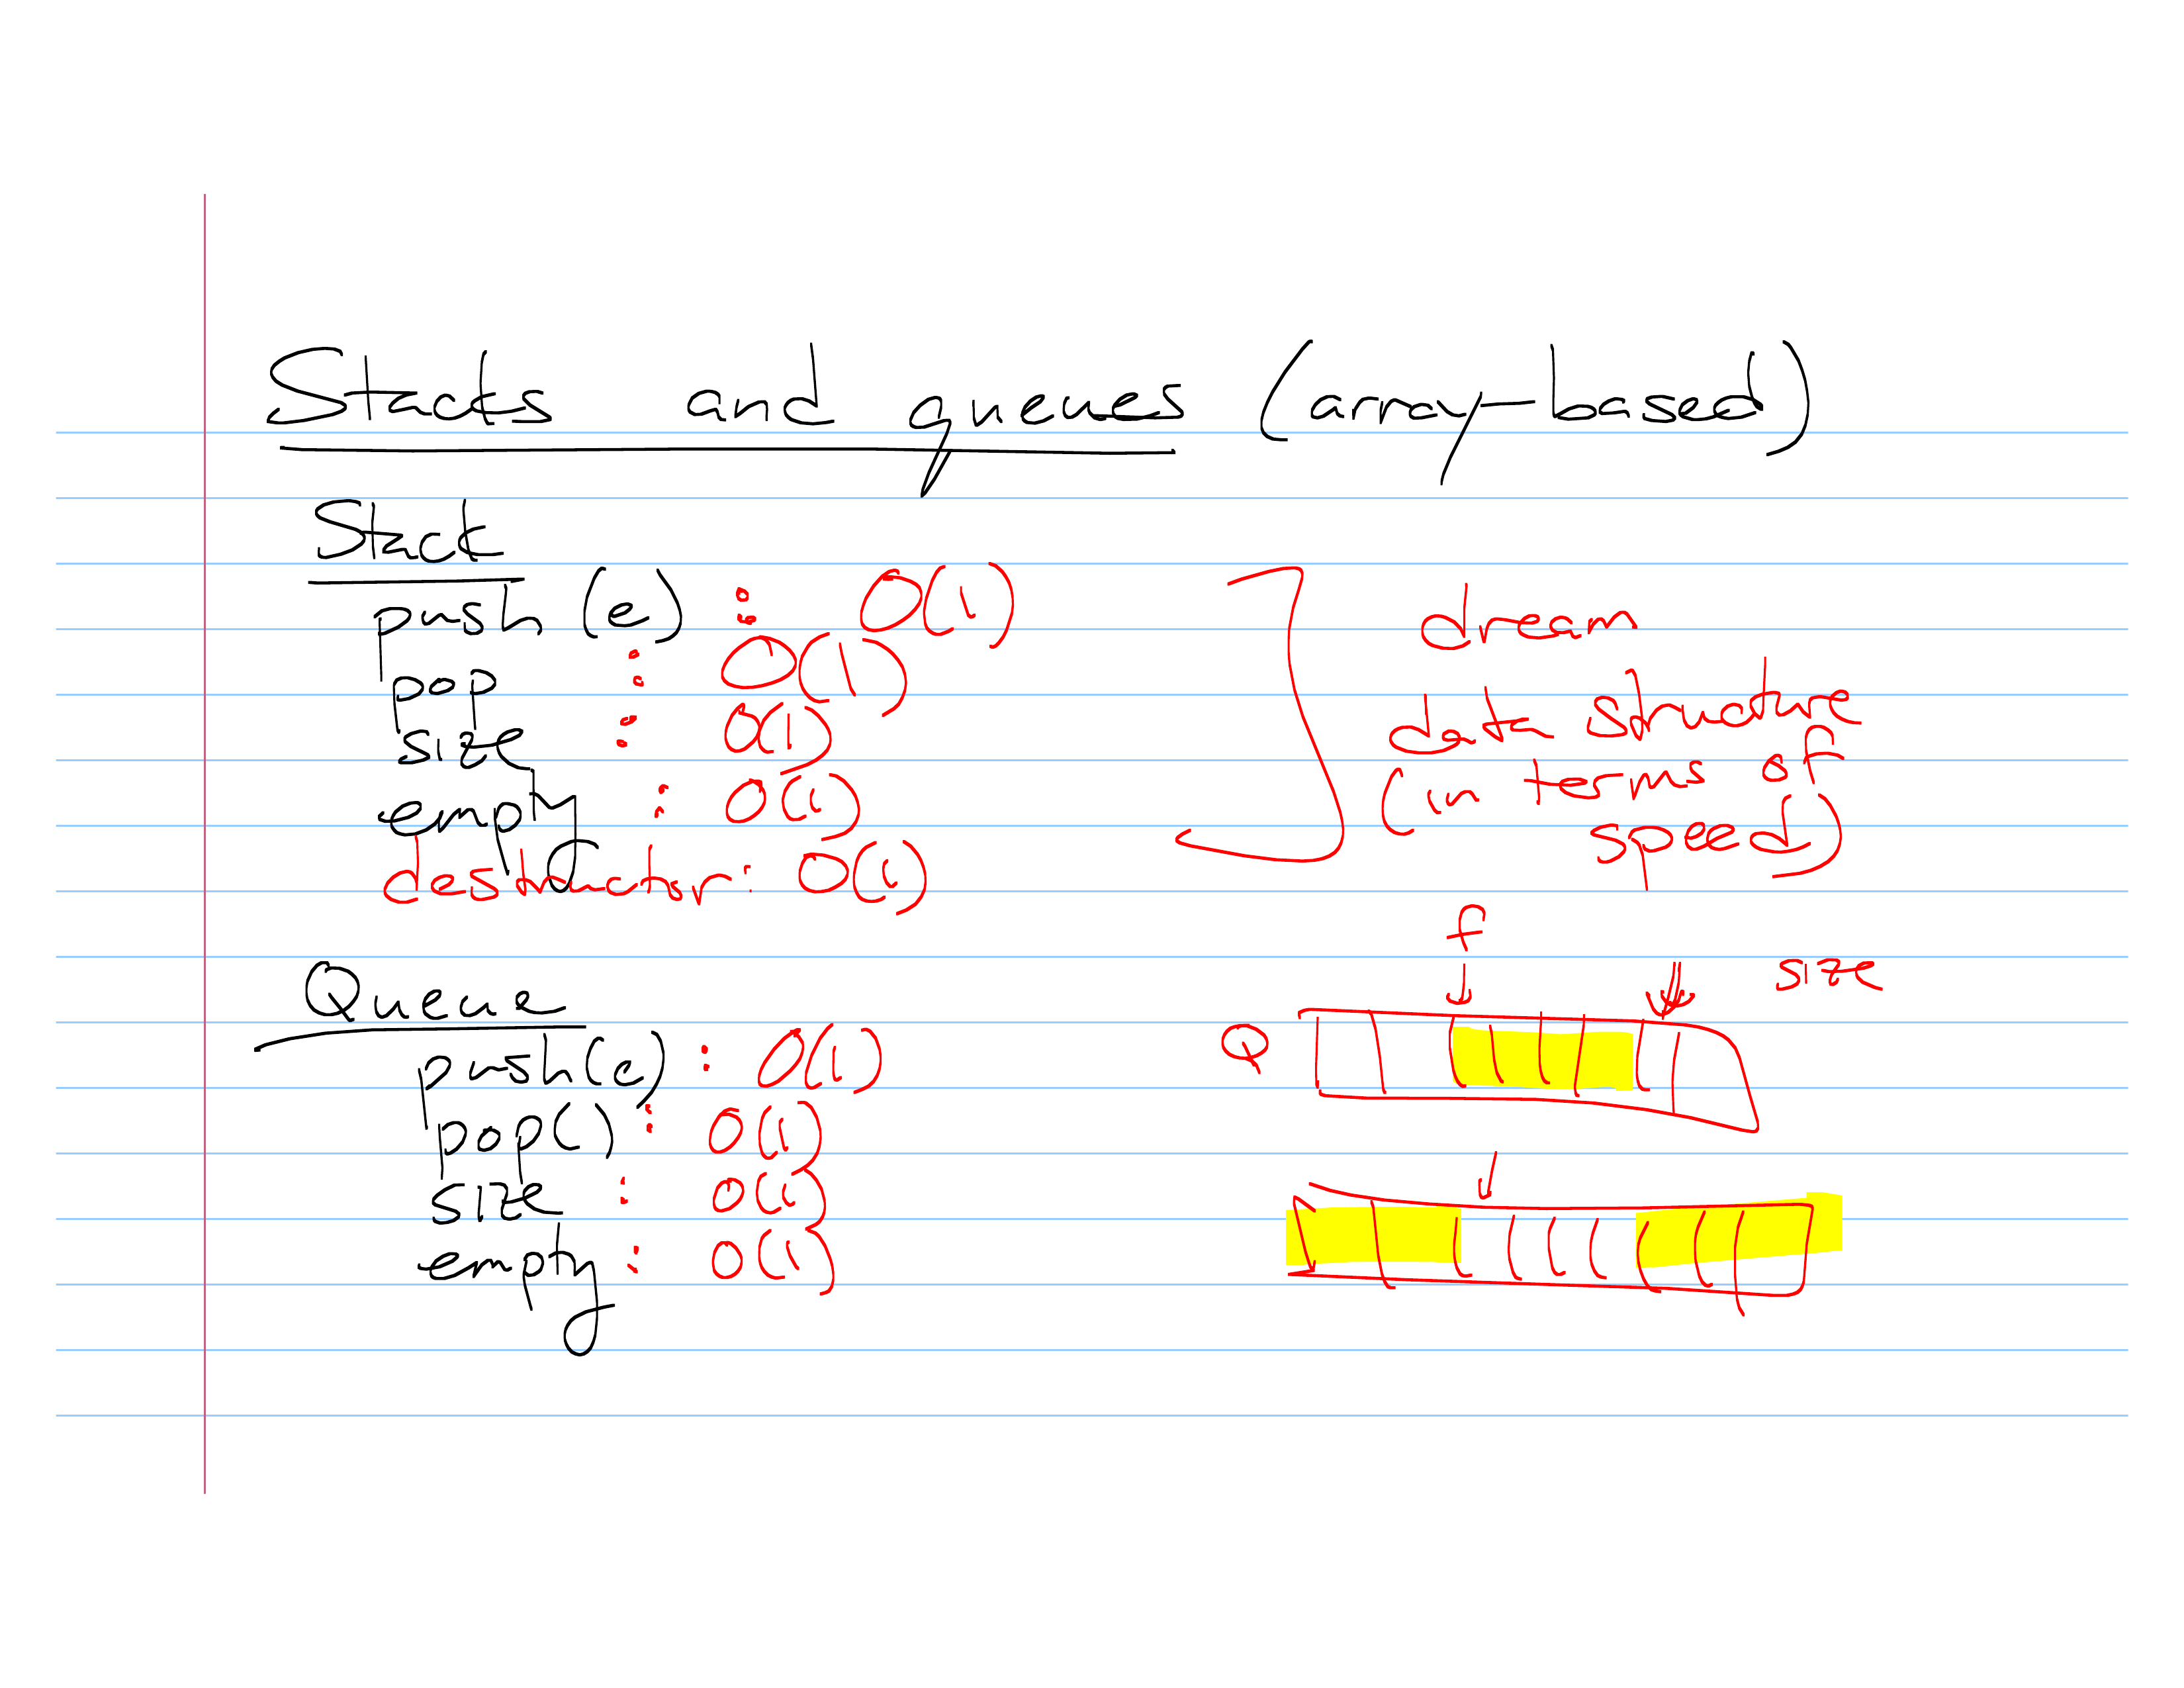 Stacks and queues (array-based)
Stack
push (e) : O(1)
pop : O(1)
size : O(1)
empty : O(1)
destructor: O(1)
dream
data structure
(in terms of
speed)
Queue
push(e) : O(1)
pop() : O(1)
size : O(1)
empty : O(1)
f
size
Q